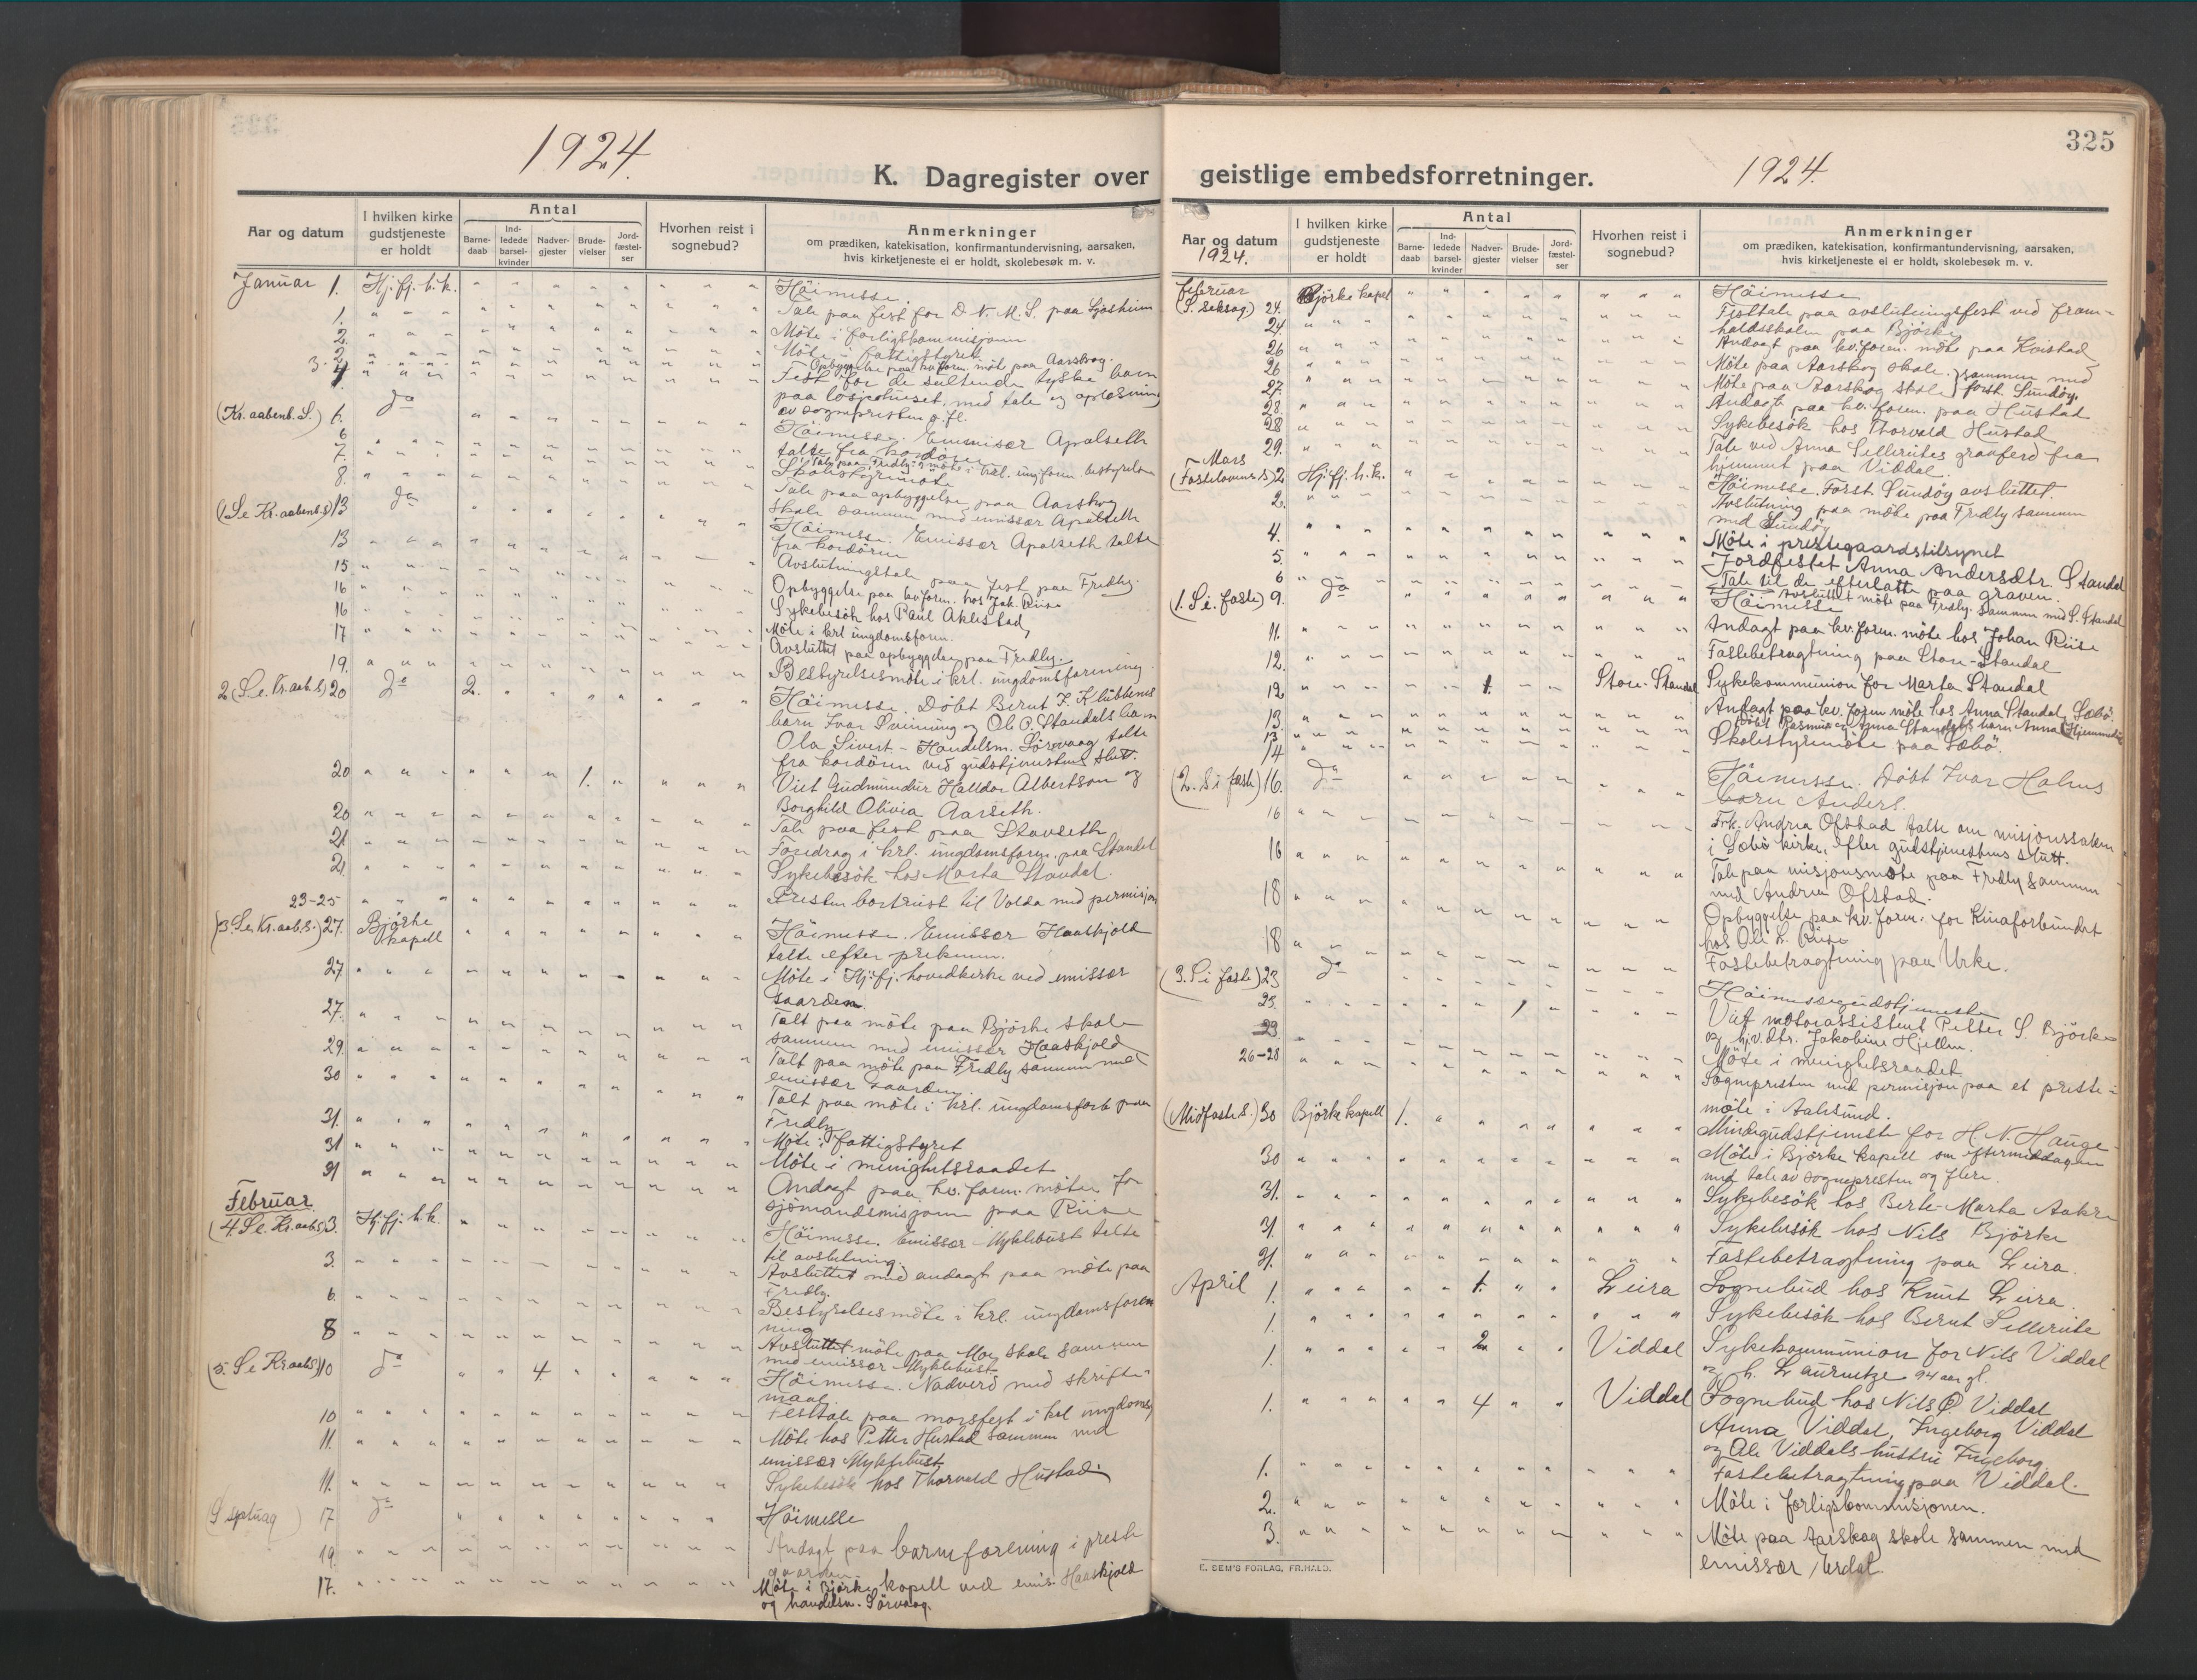 1924.
K. Dagregister over
Aar og datum
I hvilken kirke gudstjeneste er holdt
Antal
Barne-daab
Ind-ledede barsel-kvinder
Nadver-gjester
Brude-vielser
Jord-fæstel-ser
Hvorhen reist i sognebud?
Anmerkninger
om prædiken, katekisation, konfirmantundervisning, aarsaken,
hvis kirketjeneste ei er holdt, skolebesøk m. v.
Januar 1. Hj.fj. h.k. Höimesse.
1. Tale paa fest for D.N.M.S. paa Sjøsheim
2. Möte i forligskommisjonen
2. Möte i fattigstyret
3. Opbyggelse paa kv.foren. möte paa Aarskog.
4. Fest for de sultende tyske barn
paa losjehuset med tale og oplesning
av sognepresten o. fl.
(Kr. aabenb. S.) 6. do Höimesse. Emissær Apalseth
talte fra kordören
6 Tale paa Fredly
7. möte i krl. ungd.foren. bestyrelse
Skolestyremöte
8. Tale paa opbyggelse paa Aarskog
skole sammen med emissær Apalseth
(1 S.e. Kr. aabenb.) 13 do Höimesse. Emissær Apalseth talte
fra kordören
13 Avslutningstale paa fest paa Fredly.
15 Opbyggelse paa kv.foren. hos Jak. Riise
16 Sykebesök hos Paul Aklestad
16 Möte i krl ungdomsforen.
17 Avsluttet paa opbyggelse paa Fredly.
19. Bestyrelsesmöte i krl. ungdomsforening.
2 (S.e. Kr. aab.) 20 do 2. Höimesse. Döbt Bernt J. Klubbenes
barn Ivar Svinning og Ole P. Standals barn
Ola Sivert - Handelsm. Sörvaag talte
fra kordören ved gudstjenestens slut.
20 1. Viet Gudmundur Halldor Albertson og
Borghild Olivia Aarseth.
20 Tale paa fest paa Stavseth
21 Foredrag i krl. ungdomsforen. paa Standal
21. Sykebesök hos Marta Standal.
23-25 Presten bortreist til Volda med permisjon
(3. S.e. Kr. aab.) 27. Björke kapell Höimesse. Emissær Haaskjold
talte efter prekenen.
27. Möte i Hj.fj. hovedkirke ved emissær
Gaarden.
27. Talt paa möte paa Björke skole
sammen med emissær Haaskjold
29. Talt paa möte paa Fredly sammen med
emissær Gaarden.
30 Talt paa möte i krl. ungdomsforb paa
Fredly
31. Möte i fattigstyret
31 Möte i menighetsraadet
31 Andagt paa kv. foren. möte for
sjömandsmisjonen paa Riise
Februar.
4. S.e. Kr. aab. 3. Hj.fj. h.k. Höimesse. Emissær Myklebust talte
til avslutning.
3. Avsluttet med andagt paa möte paa
Fredly.
6. Bestyrelsesmöte i krl. ungdomsforen
ning
8 Avsluttet möte paa Moe skole sammen
med emissær Myklebust
(5. S.e Kr aab) 10 do 4. Höimesse. Nadverd med skrifte-
maal.
10 Festtale paa morsfest i krl ungdoms
11. Möte hos Petter Hustad sammen med
emissær Myklebust
11. Sykebesök hos Thorvald Hustad.
(S septuag) 17 do Höimesse
19. Andagt paa barneforening i preste
gaarden
17. Möte i Björke kapell ved emis. Haaskjold
og handelsm. Sörvaag.
325
geistlige embedsforretninger.
1924.
Aar og datum
1924.
I hvilken kirke gudstjeneste er holdt
Antal
Barne-daab
Ind-ledede barsel-kvinder
Nadver-gjester
Brude-vielser
Jord-fæstel-ser
Hvorhen reist i sognebud?
Anmerkninger
om prædiken, katekisation, konfirmantundervisning, aarsaken,
hvis kirketjeneste ei er holdt, skolebesøk m. v.
Februar
(S. seksag.) 24. Björke kapel Höimesse
24. Festtale paa avslutningsfest ved fram-
haldsskolen paa Björke
26 Andagt paa kv.foren. möte paa Kvistad
26 Möte paa Aarskog skole
27. Möte paa Aarskog skole } sammen med forst. Sundöy.
28. Andagt paa kv. foren. paa Hustad
28 Sykebesök hos Thorvald Hustad
29. Tale ved Anna Sellereites gravferd fra
hjemmet paa Viddal.
Mars
(Fastelavens S) 2 Hj.fj. h.k. Höimesse. Forst. Sundöy avsluttet.
2. Avslutning paa möte paa Fredly sammen
med Sundöy
4. Möte i prestegaardstilsynet
5. Jordfestet Anna Andersdtr. Standal
6 Tale til de efterlatte paa graven.
Avsluttet möte paa Fredly sammen med S. Standal
(1. S. i. faste) 9. do Höimesse
11. Andagt paa kv.foren. möte hos Johan Riise
12. Fastebetragtning paa Store-Standal
12. 1. Store-Standal Sykekommunion for Marta Standal
13. Andagt paa kv. foren möte hos Anna Standal, Sæbö.
13. Döbt Rasmus og Anna Standals barn Anna (Hjemmedöpt)
14 Skolestyremöte paa Sæbö.
(2. S i faste) 16. do Höimesse. Döbt Ivar Holms
barn Anders.
16 Frk. Andrea Ofstad talte om misjonssaken
i Sæbö kirke efter gudstjenestens slutt.
16 Tale paa misjonsmöte paa Fredly sammen
med Andrea Ofstad.
18 Opbyggelse paa kv. foren. for Kinaforbundet
hos Ole L. Riise
18 Fastebetragtning paa Urke.
(3. S i faste) 23 do Höimessegudstjeneste
23. 1 Viet motorassistent Petter S. Björke
og hj.v. dtr. Jakobine Hjellen.
23. Möte i menighetsraadet
26-28 Sognepresten med permisjon paa et preste-
möte i Aalesund.
(Midfaste S.) 30 Björke kapell 1. Mindegudstjeneste for H. N. Hauge
30 Möte i Björke kapell om eftermiddagen
med tale av sognepresten og flere.
31. Sykebesök hos Berte-Marta Aakre
31 Sykebesök hos Nils Björke
31. Fastebetragtning paa Leira.
April 1. 1. Leira Sognebud hos Knut Leira.
1. Sykebesök hos Bernt Sellereite
1. 2. Viddal Sykekommunion for Nils Viddal
og h. Laurentze 94 aar gl.
1. 4 Viddal Sognebud hos Nils P. Viddal
Anna Viddal, Ingeborg Viddal
og Ole Viddals hustru Ingeborg.
1. Fastebetragtning paa Viddal.
2. Möte i forligskommisjonen.
3. Möte paa Aarskog skole sammen med
emissær Urdal.
E. SEM'S FORLAG, FR.HALD.